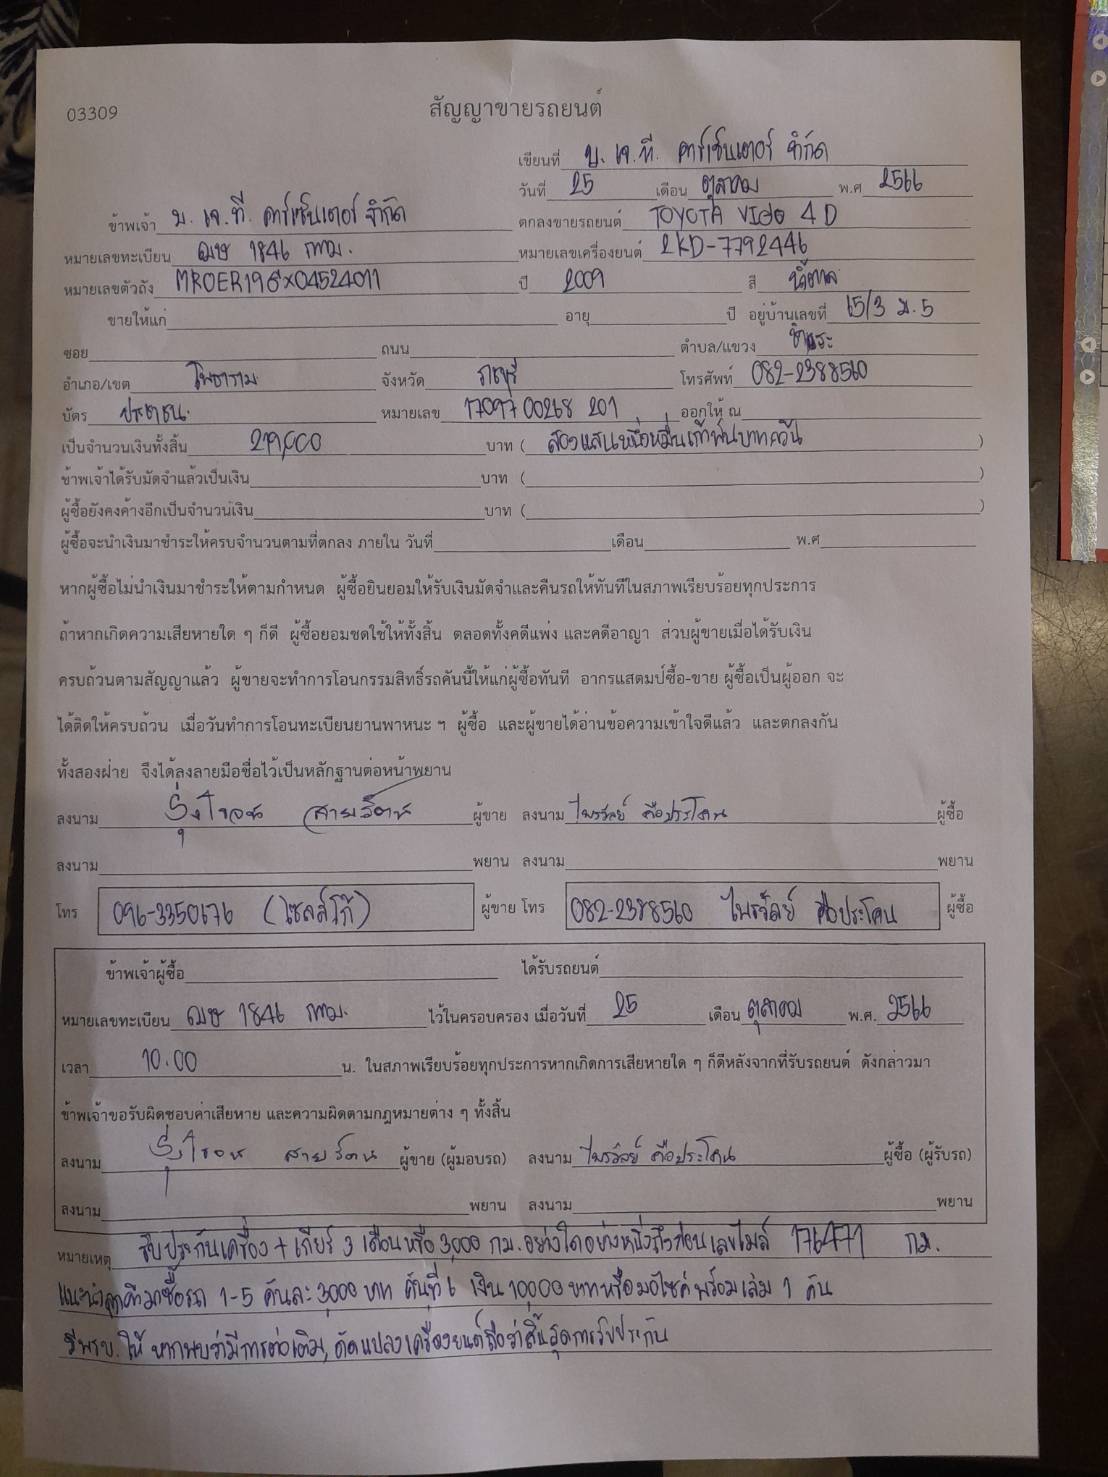 03309
สัญญาขายรถยนต์
เขียนที่ บ. เจ. ที. คาร์เซ็นเตอร์ จำกัด
วันที่ 25 เดือน ตุลาคม พ.ศ 2566
ข้าพเจ้า บ. เจ. ที. คาร์เซ็นเตอร์ จำกัด ตกลงขายรถยนต์ TOYOTA VIGO 4D
หมายเลขทะเบียน ฌษ 1846 กทม. หมายเลขเครื่องยนต์ 2KD-7792446
หมายเลขตัวถัง MROER19GX04524011 ปี 2009 สี น้ำตาล
ขายให้แก่ อายุ ปี อยู่บ้านเลขที่ 15/3 ม.5
ซอย ถนน ตำบล/แขวง ชำแระ
อำเภอ/เขต โพธาราม จังหวัด ราชบุรี โทรศัพท์ 082-2388560
บัตร ประชาชน. หมายเลข 17097 00268 201 ออกให้ ณ
เป็นจำนวนเงินทั้งสิ้น 219,000 บาท ( สองแสนหนึ่งหมื่นเก้าพันบาทถ้วน )
ข้าพเจ้าได้รับมัดจำแล้วเป็นเงิน บาท ( )
ผู้ซื้อยังคงค้างอีกเป็นจำนวนเงิน บาท ( )
ผู้ซื้อจะนำเงินมาชำระให้ครบจำนวนตามที่ตกลง ภายใน วันที่ เดือน พ.ศ
หากผู้ซื้อไม่นำเงินมาชำระให้ตามกำหนด ผู้ซื้อยินยอมให้รับเงินมัดจำและคืนรถให้ทันทีในสภาพเรียบร้อยทุกประการ
ถ้าหากเกิดความเสียหายใด ๆ ก็ดี ผู้ซื้อยอมชดใช้ให้ทั้งสิ้น ตลอดทั้งคดีแพ่ง และคดีอาญา ส่วนผู้ขายเมื่อได้รับเงิน
ครบถ้วนตามสัญญาแล้ว ผู้ขายจะทำการโอนกรรมสิทธิ์รถคันนี้ให้แก่ผู้ซื้อทันที อากรแสตมป์ซื้อ-ขาย ผู้ซื้อเป็นผู้ออก จะ
ได้ติดให้ครบถ้วน เมื่อวันทำการโอนทะเบียนยานพาหนะ ฯ ผู้ซื้อ และผู้ขายได้อ่านข้อความเข้าใจดีแล้ว และตกลงกัน
ทั้งสองฝ่าย จึงได้ลงลายมือชื่อไว้เป็นหลักฐานต่อหน้าพยาน
ลงนาม รุ่งโรจน์ ผู้ขาย ลงนาม ไพรวัลย์ คือประโคน ผู้ซื้อ
ลงนาม พยาน ลงนาม พยาน
โทร 096-3350676 (เซลล์โก้) ผู้ขาย โทร 082-2388560 ไพรวัลย์ คือประโคน ผู้ซื้อ
ข้าพเจ้าผู้ซื้อ ได้รับรถยนต์
หมายเลขทะเบียน ฌษ 1846 กทม. ไว้ในครอบครอง เมื่อวันที่ 25 เดือน ตุลาคม พ.ศ. 2566
เวลา 10.00 น. ในสภาพเรียบร้อยทุกประการหากเกิดการเสียหายใด ๆ ก็ดีหลังจากที่รับรถยนต์ ดังกล่าวมา
ข้าพเจ้าขอรับผิดชอบค่าเสียหาย และความผิดตามกฎหมายต่าง ๆ ทั้งสิ้น
ลงนาม รุ่งโรจน์ ผู้ขาย (ผู้มอบรถ) ลงนาม ไพรวัลย์ คือประโคน ผู้ซื้อ (ผู้รับรถ)
ลงนาม พยาน ลงนาม พยาน
หมายเหตุ รับประกันเครื่อง + เกียร์ 3 เดือนหรือ 3,000 กม. อย่างใดอย่างหนึ่งถึงก่อน เลขไมล์ 176471 กม.
แนะนำลูกค้ามาซื้อรถ 1-5 คันละ 3000 บาท คันที่ 6 เงิน 10000 บาทหรือมอไซค์พร้อมเล่ม 1 คัน
มีพรบ. ให้ หากพบว่ามีการต่อเติม, ดัดแปลงเครื่องยนต์ถือว่าสิ้นสุดการรับประกัน